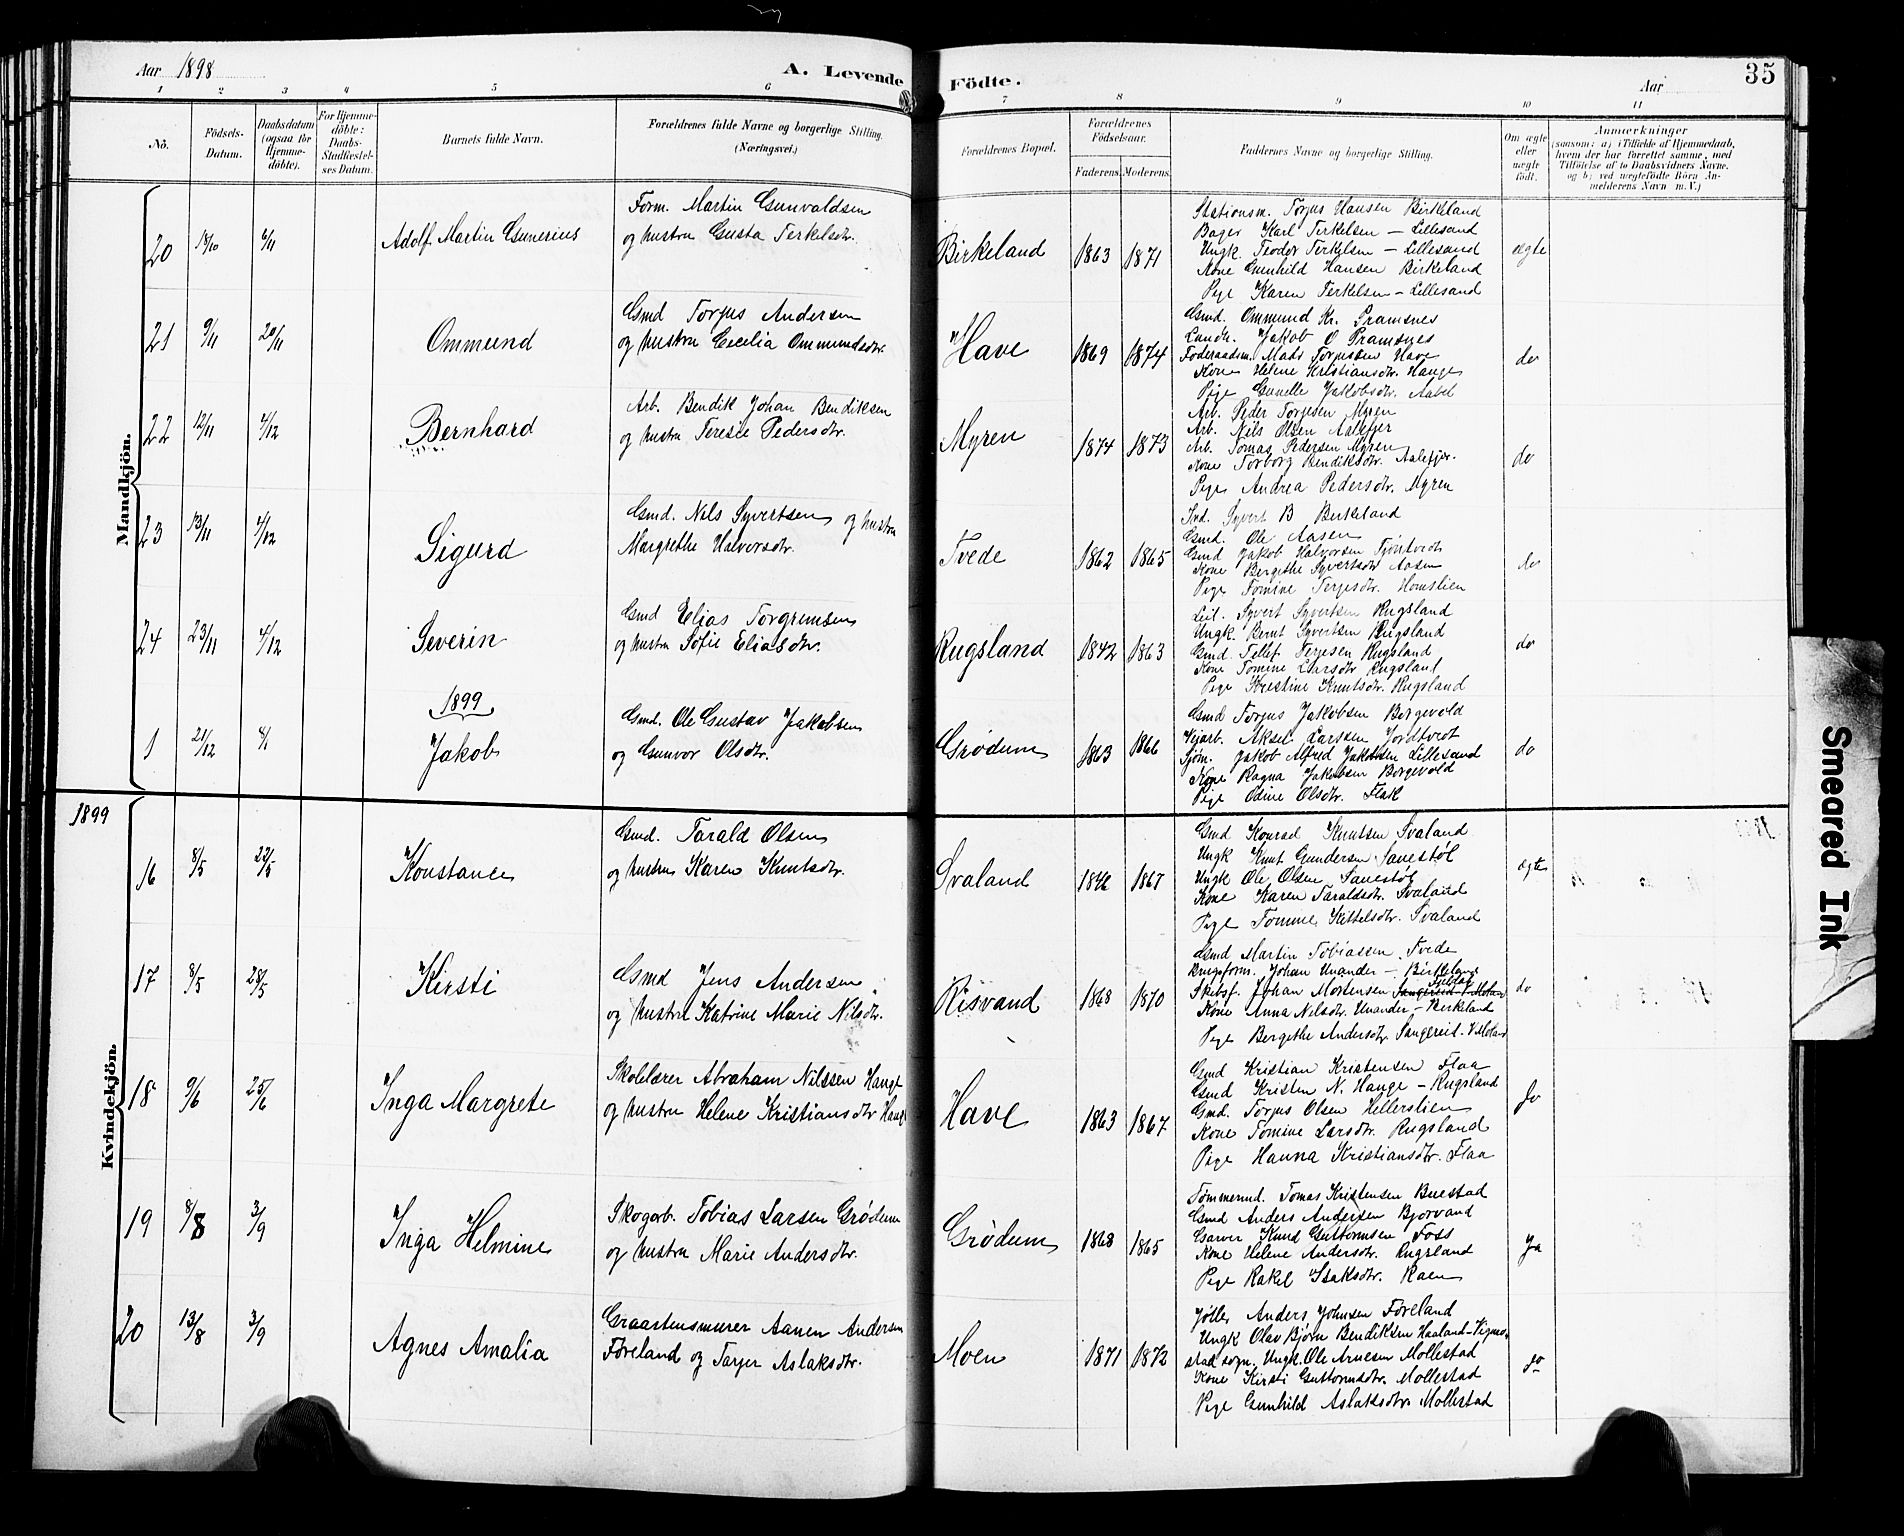 Aar 1898
A. Levende Födte.
Aar
35
1 2 3 4 5 6 7 8 9 10 11
No.
Födsels-Datum.
Daabsdatum (ogsaa for Hjemme-döbte).
For Hjemme-döbte: Daabs-Stadfæstel-ses Datum.
Barnets fulde Navn.
Forældrenes fulde Navne og borgerlige Stilling.
(Næringsvei.)
Forældrenes Bopæl.
Forældrenes Födselsaar.
Faderens. Moderens.
Faddernes Navne og borgerlige Stilling.
Om ægte eller uægte födt.
Anmærkninger
(saasom: a) i Tilfælde af Hjemmedaab,
hvem der har forrettet samme, med
Tilföielse af to Daabsvidners Navne.
og b) ved uægtefödte Börn An-
melderens Navn m. V.)
Mandkjön.
20 18/10 6/11 Adolf Martin Gunerius
Form. Martin Gunvaldsen
og hustru Gusta Terkelsdtr.
Birkeland 1863 1871
Stationsm. Torjus Hansen Birkeland
Bager Karl Terkelsen - Lillesand
Ungk. Teodor Terkelsen - Lillesand
Kone Gunhild Hansen Birkeland
Pige Karen Terkelsen - Lillesand
ægte
21 9/11 20/11 Ommund
Gmd Torjus Andersen
og hustru Cecilia Ommundsdtr.
Have 1869 1874
Gmd. Ommund Kr. Pramsnes
Landh. Jakob O Pramsnes
Föderaadsm. Mads Torjussen Have
Kone Helene Kristiansdtr. Hauge
Pige Gunelle Jakobsdtr. Aabel
do
22 12/11 4/12 Bernhard
Arb. Bendik Johan Bendiksen
og hustru Teresie Pedersdtr.
Myren 1874 1873
Arb. Peder Torjesen Myren
Arb. Nils Olsen Aalefjer
Arb. Tomas Pedersen Myren
Kone Torborg Bendiksdtr. Aalefjer.
Pige Andrea Pedersdtr. Myren
do
23 13/11 4/12 Sigurd
Gmd. Nils Syvertsen og hustru
Margrethe Halvorsdtr.
Tvede 1862 1865
Ind. Syvert B Birkeland
Gmd. Ole Aasen
Gmd Jakob Halvorsen
Kone Bergithe Syvertsdtr Aasen
Pige Tomine Terjesdtr. Homslien
do
24 23/11 4/12 Severin
Gmd Elias Torgrimsen
og hustru Sofie Eliasdtr.
Rugsland 1842 1863
Leil. Syvert Syvertsen Rugsland
Ungk. Bernt Syvertsen Rugsland
Gmd. Tellef Terjesen Rugsland
Kone Tomine Larsdtr Rugsland
Pige Kristine Knutsdtr. Rugsland
do
1899
1 21/12 8/1 Jakob
Gmd. Ole Gustav Jakobsen
og Gunvor Olsdtr.
Grødum 1863 1866
Gmd Torjus Jakobsen Borgevold
Vejarb. Aksel Larssen
Sjöm. Jakob Alfred Jakobsen Lillesand
Kone Ragna Jakobsen Borgevold
Pige Odine Olsdtr. Flak
do
1899
Kvindekjön.
16 8/5 22/5 Konstance
Gmd. Tarald Olsen
og hustru Karen Knutsdtr.
Svaland 1842 1867
Gmd Konrad Knutsen Svaland
Ungk Knut Gundersen Sanestøl
Ungk Ole Olsen Sanestøl
Kone Karen Taraldsdtr. Svaland
Pige Tomine Kittelsdtr. Svaland
ægte
17 8/5 28/5 Kirsti
Gmd Jens Andersen
og hustru Katrine Marie Nilsdtr.
Risvand 1868 1870
Gmd Martin Tobiassen Tvede
Brugsform. Johan Unander - Birkeland
Skibsf. Johan Mortensen
Kone Anna Nilsdtr. Unander - Birkeland
Pige Bergethe Andersdtr. Sangereid - V. Moland
do
18 9/6 25/6 Inga Margrete
Skolelærer Abraham Nilssen Hauge
og hustru Helene Kristiansdtr Hauge
Have 1863 1867
Gmd Kristian Kristensen Flaa
Gmd Kristen N. Hauge - Rugsland
Gmd. Torjus Olsen Hellerslien
Kone Tomine Larsdtr. Rugsland
Pige Hanna Kristiansdtr. Flaa
do
19 8/8 3/9 Inga Helmine
Skogarb. Tobias Larsen Grødum
og hustru Marie Andersdtr.
Grødum 1868 1865
Tømmermd. Tomas Kristensen Buestad
Gmd Anders Andersen Bjorvand
Garver Knud Guttormsen Foss
Kone Helene Andersdtr. Rugsland
Pige Rakel Isaksdtr. Raen
20 13/8 3/9 Agnes Amalia
Graastensmurer Aanen Andersen
Føreland og Tarjer Aslaksdtr.
Moen 1871 1872
Anders Johnsen Føreland
Ungk Olav Bjørn Bendiksen Haaland - Vigme-
stad sogn. Ungk. Ole Arnesen Mollestad
Kone Kirsti Guttormsdtr. Mollestad
Pige Gunhild Aslaksdtr. Mollestad
do
Smeared Ink